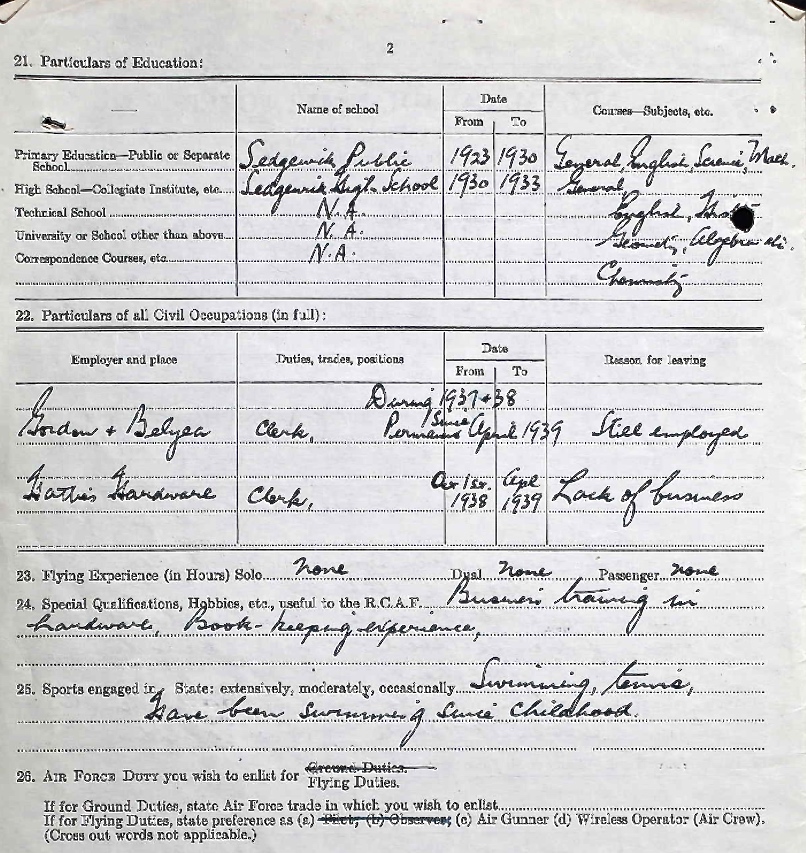 2
21. Particulars of Education:
Name of school
Date
From To
Courses—Subjects, etc.
Primary Education—Public or Separate School Sedgewick Public 1923 1930 General, English, Science, Math.
High School—Collegiate Institute, etc. Sedgewick High School 1930 1933 General,
Technical School N.A. English,
University or School other than above N.A. Geometry, Algebra
Correspondence Courses, etc. N.A.
Chemistry
22. Particulars of all Civil Occupations (in full):
Employer and place
Duties, trades, positions
Date
From To
Reason for leaving
During 1937 + 38
Since
Gordon + Belyea Clerk, Permanent April 1939 Still employed
Hardware Clerk, 1st. 1938 Apl 1939 Lack of business
23. Flying Experience (in Hours) Solo none Dual none Passenger none
24. Special Qualifications, Hobbies, etc., useful to the R.C.A.F. Business training in
hardware, Book-keeping experience,
25. Sports engaged in, State: extensively, moderately, occasionally Swimming, tennis,
Have been swimming since childhood.
26. AIR FORCE DUTY YOU WISH TO ENLIST FOR Ground Duties.
Flying Duties.
If for Ground Duties, state Air Force trade in which you wish to enlist
If for Flying Duties, state preference as (a) Pilot; (b) Observer; (c) Air Gunner (d) Wireless Operator (Air Crew).
(Cross out words not applicable.)